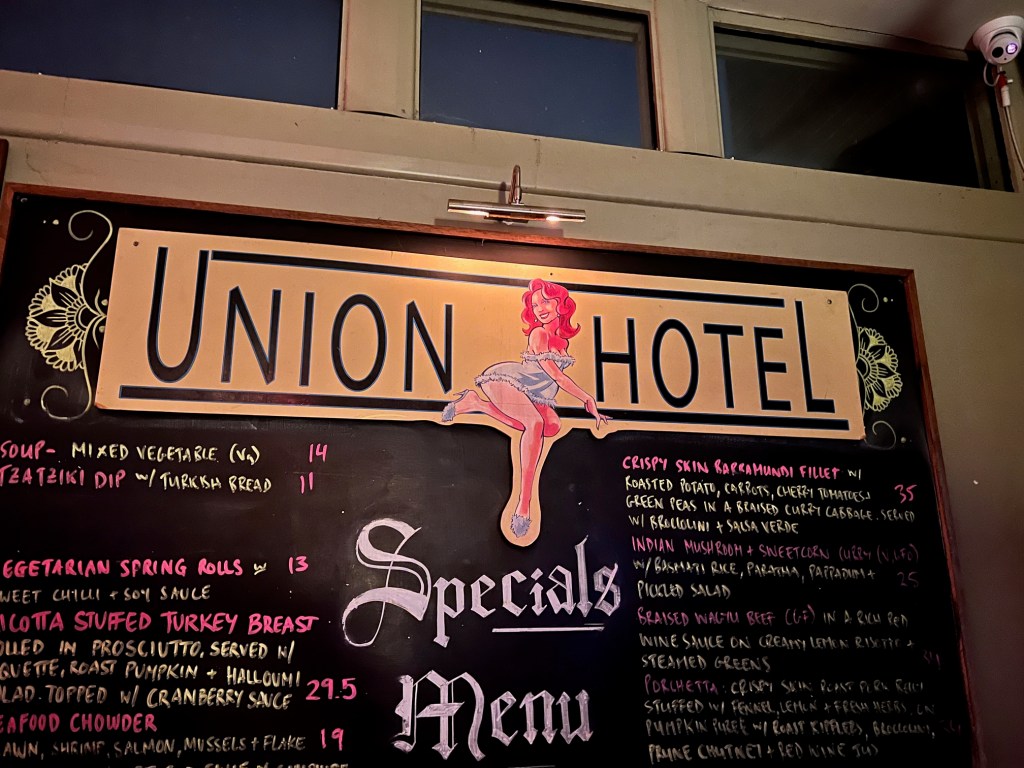 UNION HOTEL
SOUP- MIXED VEGETABLE (Vg) 14
TZATZIKI DIP W/ TURKISH BREAD 11
EGETARIAN SPRING ROLLS W 13
WEET CHILLI + SOY SAUCE
ICOTTA STUFFED TURKEY BREAST
OLLED IN PROSCIUTTO, SERVED W/
QUETTE, ROAST PUMPKIN + HALLOUMI
LAD. TOPPED W/ CRANBERRY SAUCE 29.5
EAFOOD CHOWDER
AWN, SHRIMP, SALMON, MUSSELS + FLAKE 19
Specials
Menu
CRISPY SKIN BARRAMUNDI FILLET W/
ROASTED POTATO, CARROTS, CHERRY TOMATOES + 35
GREEN PEAS IN A BRAISED CURRY CABBAGE. SERVED
W/ BROCCOLINI + SALSA VERDE
INDIAN MUSHROOM + SWEETCORN CURRY
W/ BASMATI RICE, PARATHA, PAPPADUM + 25
PICKLED SALAD
BRAISED WAGYU BEEF (Gf) IN A RICH RED
WINE SAUCE ON CREAMY LEMON RISOTTO +
STEAMED GREENS
PORCHETTA: CRISPY SKIN ROAST PORK BELLY
STUFFED W/ FENNEL, LEMON + FRESH HERBS. ON
PUMPKIN PUREE W/ ROAST KIPFLERS, BROCCOLINI,
PRUNE CHUTNEY + RED WINE JUS